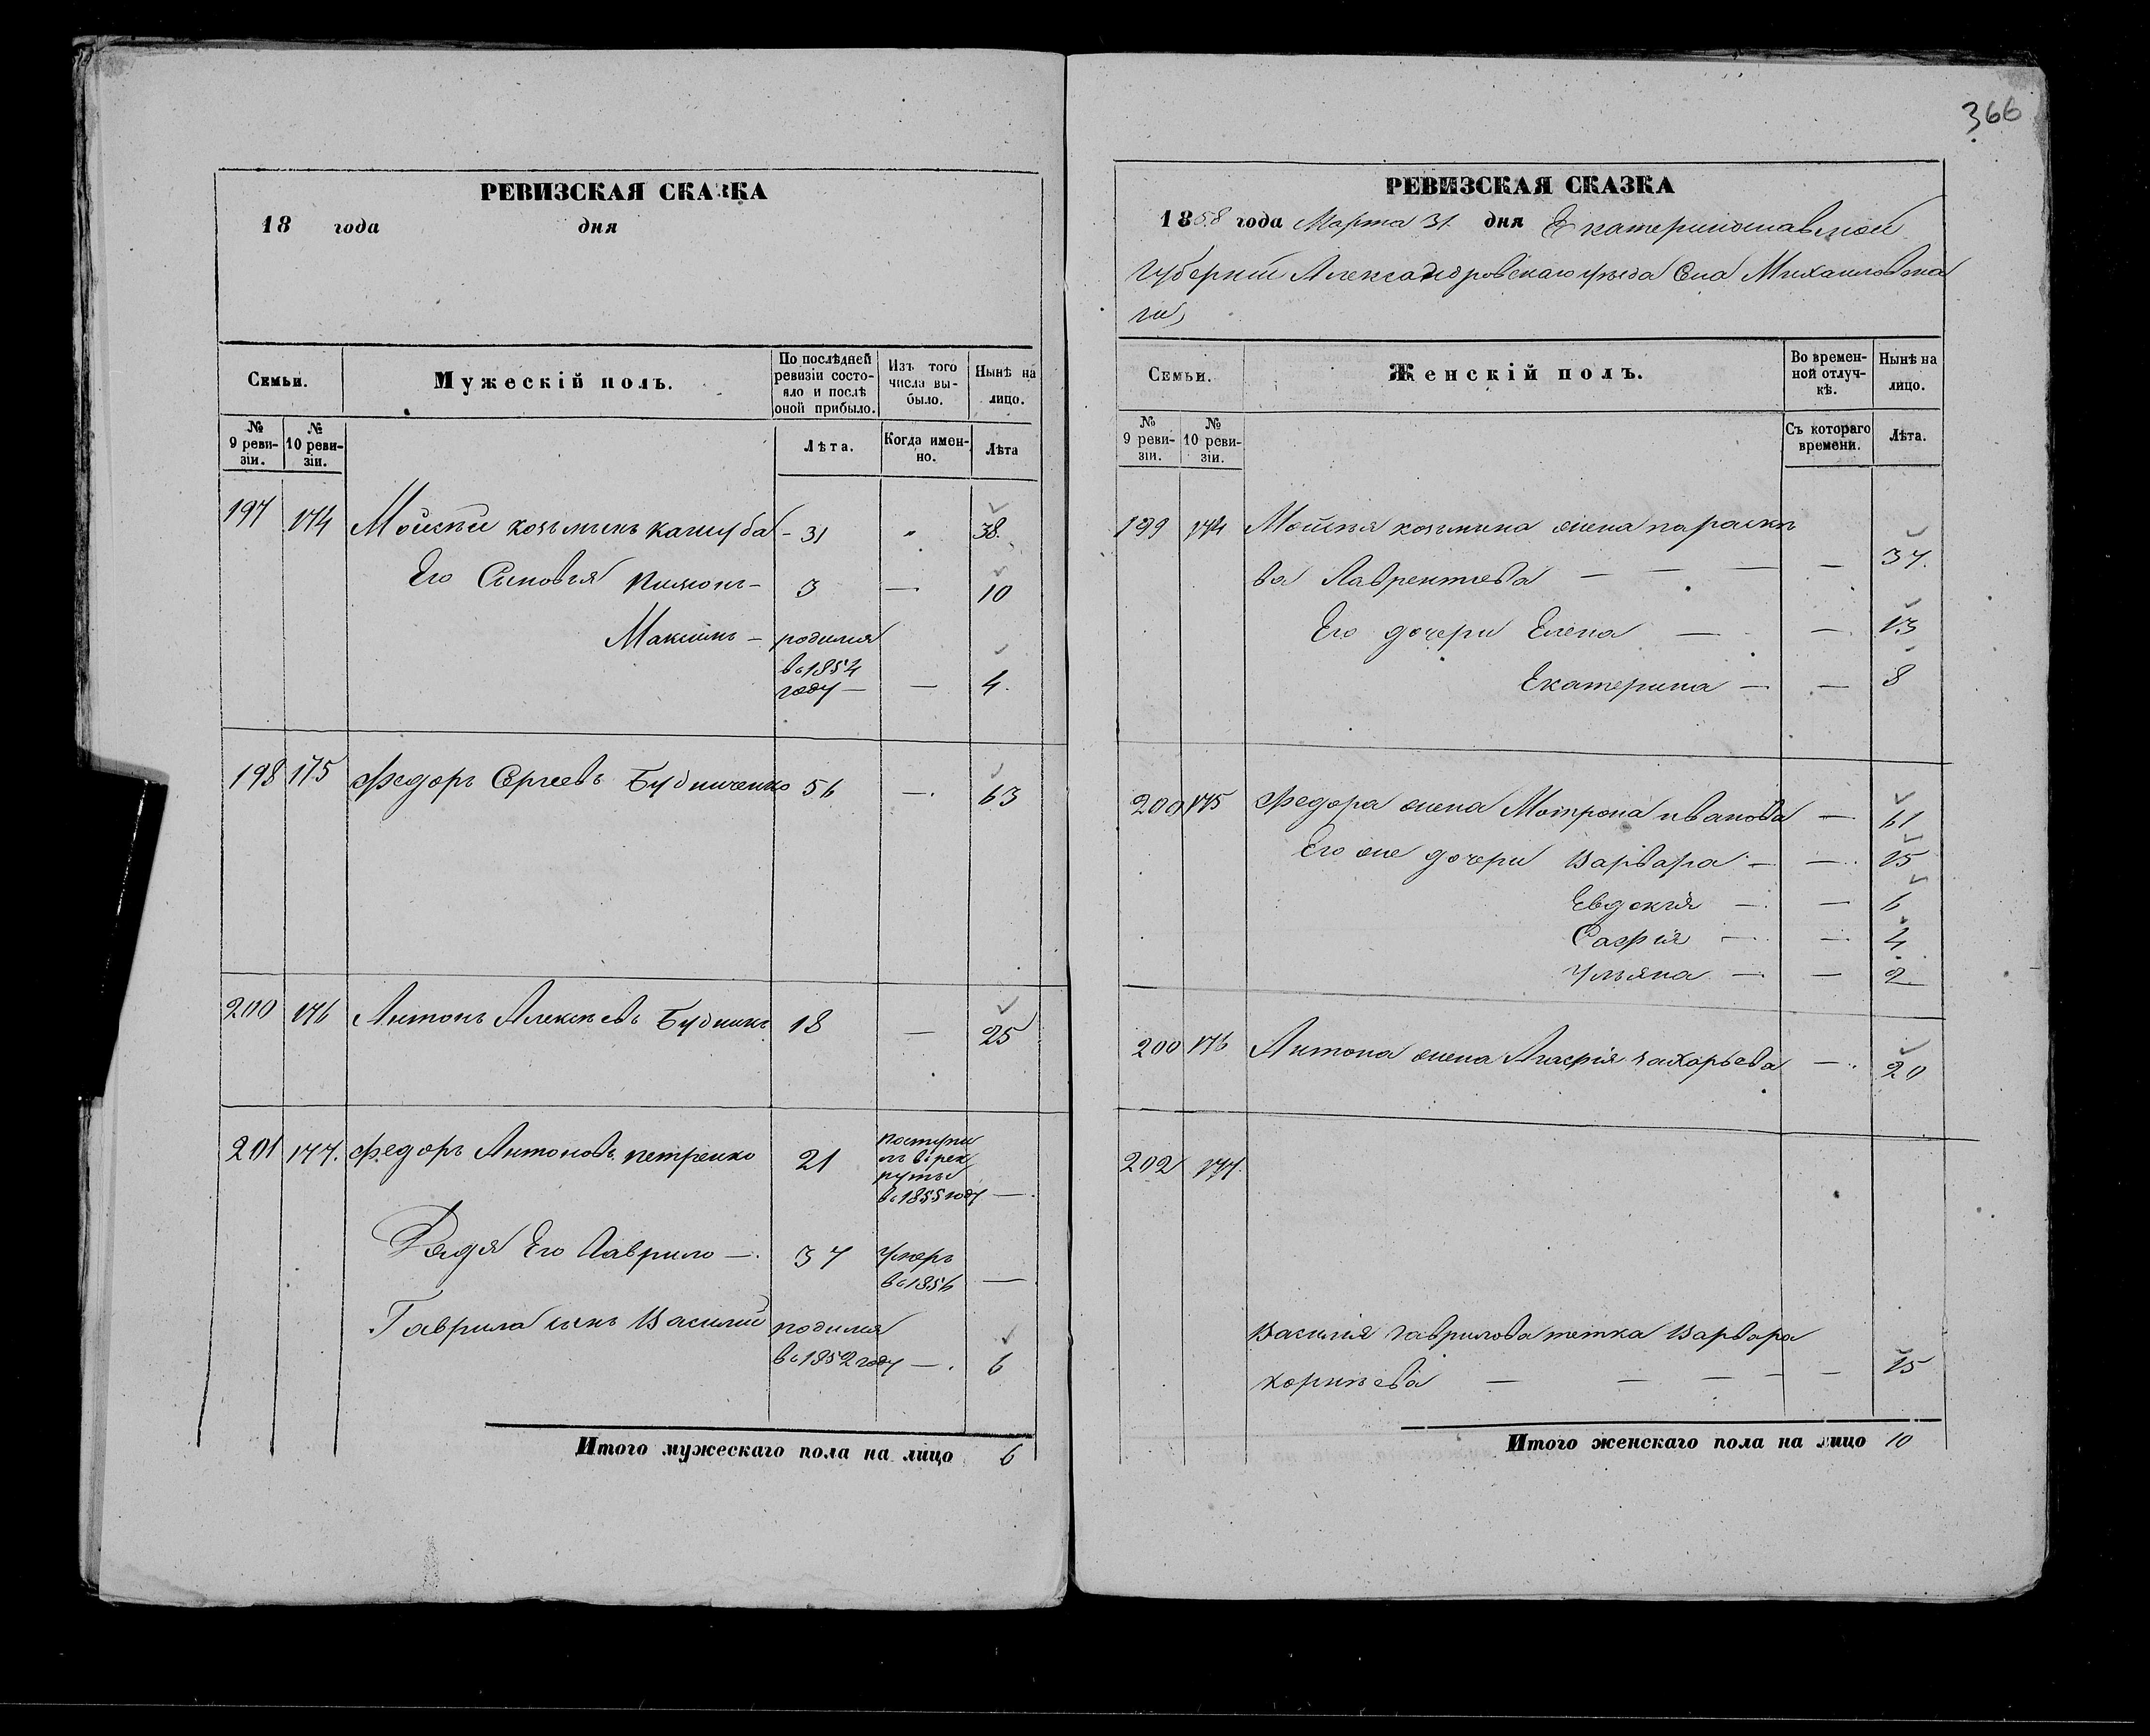 366
РЕВИЗСКАЯ СКАЗКА
18 года дня
Семьи.
Мужескій полъ.
По послѣдней ревизіи состояло и послѣ оной прибыло.
Изъ того числа выбыло.
Нынѣ на лицо.
№ 9 ревизіи.
№ 10 ревизіи.
Лѣта.
Когда именно.
Лѣта
197 174 Мойсѣй козьминъ кашуба - 31 " 38.
Его Сыновья Пимонъ - 3 — 10
Максимъ - родился
въ 1854
году — — 4.
198 175 Федоръ Сергеевъ Будниченко 56 — 63
200 176 Антонъ Алексѣевъ Будникъ 18 — 25
201 177. Федоръ Антоновъ петренко 21 поступи
лъ въ рек
руты
въ 1855 году —
Дядя Его Гаврило — 37 Умеръ
въ 1856 —
Гаврила сынъ Василий родился
въ 1852 году — 6
Итого мужескаго пола на лицо 6
РЕВИЗСКАЯ СКАЗКА
1858 года Марта 31. дня Екатеринославской
Губерніи Александровскаго уѣзда Села Михайловска
го
Семьи.
Женскій полъ.
Во временной отлучкѣ.
Нынѣ на лицо.
№ 9 ревизіи.
№ 10 ревизіи.
Съ котораго времени.
Лѣта.
199 174 Мойсѣя козьмина жена параскѣ
ва Лаврентьева — — — — 37.
Его дочери Елена — — 13
Екатерина — — 8
200 175 Федора жена Мотрона иванова — 61
Его же дочери Варвара — — 15
Евдокія — — 6
Софія — — 4
Ульяна — — 2
200 176 Антона жена Агафія захарьева — 20
202 177.
Василія гаврилова тетка Варвара
корнѣева — — — — — 15
Итого женскаго пола на лицо 10